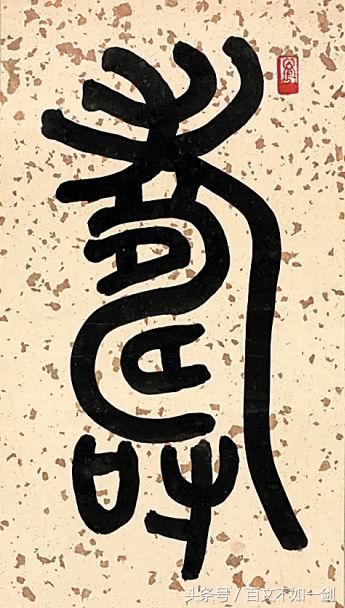 壽
头条号 / 百文不如一剑